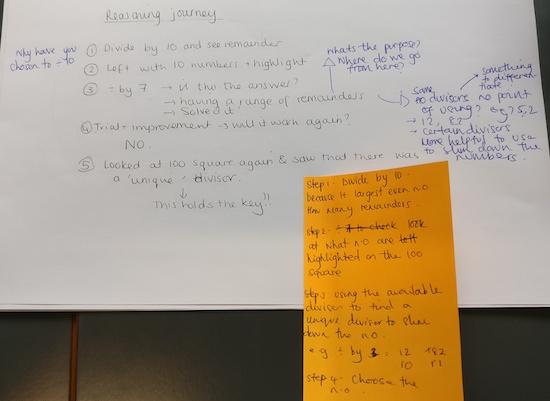 Reasoning journey
Why have you
chosen to ÷ 10
① Divide by 10 and see remainder
② Left with 10 numbers + highlight
③ ÷ by 7 → is this the answer?
→ having a range of remainders
→ Solved it.
④ Trial + improvement → will it work again?
NO.
⑤ Looked at 100 square again & saw that there was
a 'unique' divisor.
↓
This holds the key!!
Whats the purpose?
Where do we go
from here?
something
to differen-
tiate
Same
divisors no point
of using? eg? 5,2
→ 12
→ certain divisors
More helpful to use
to slim down the
numbers.
Step 1: Divide by 10.
because it largest even no
How many remainders.
Step 2- look
at what n.o are left
highlighted on the 100
square
Step 3 using the available
divisor to find a
unique divisor to slim
down the no.
e.g ÷ by 3: 12 182
r0 r1
Step 4- Choose the
n.o.